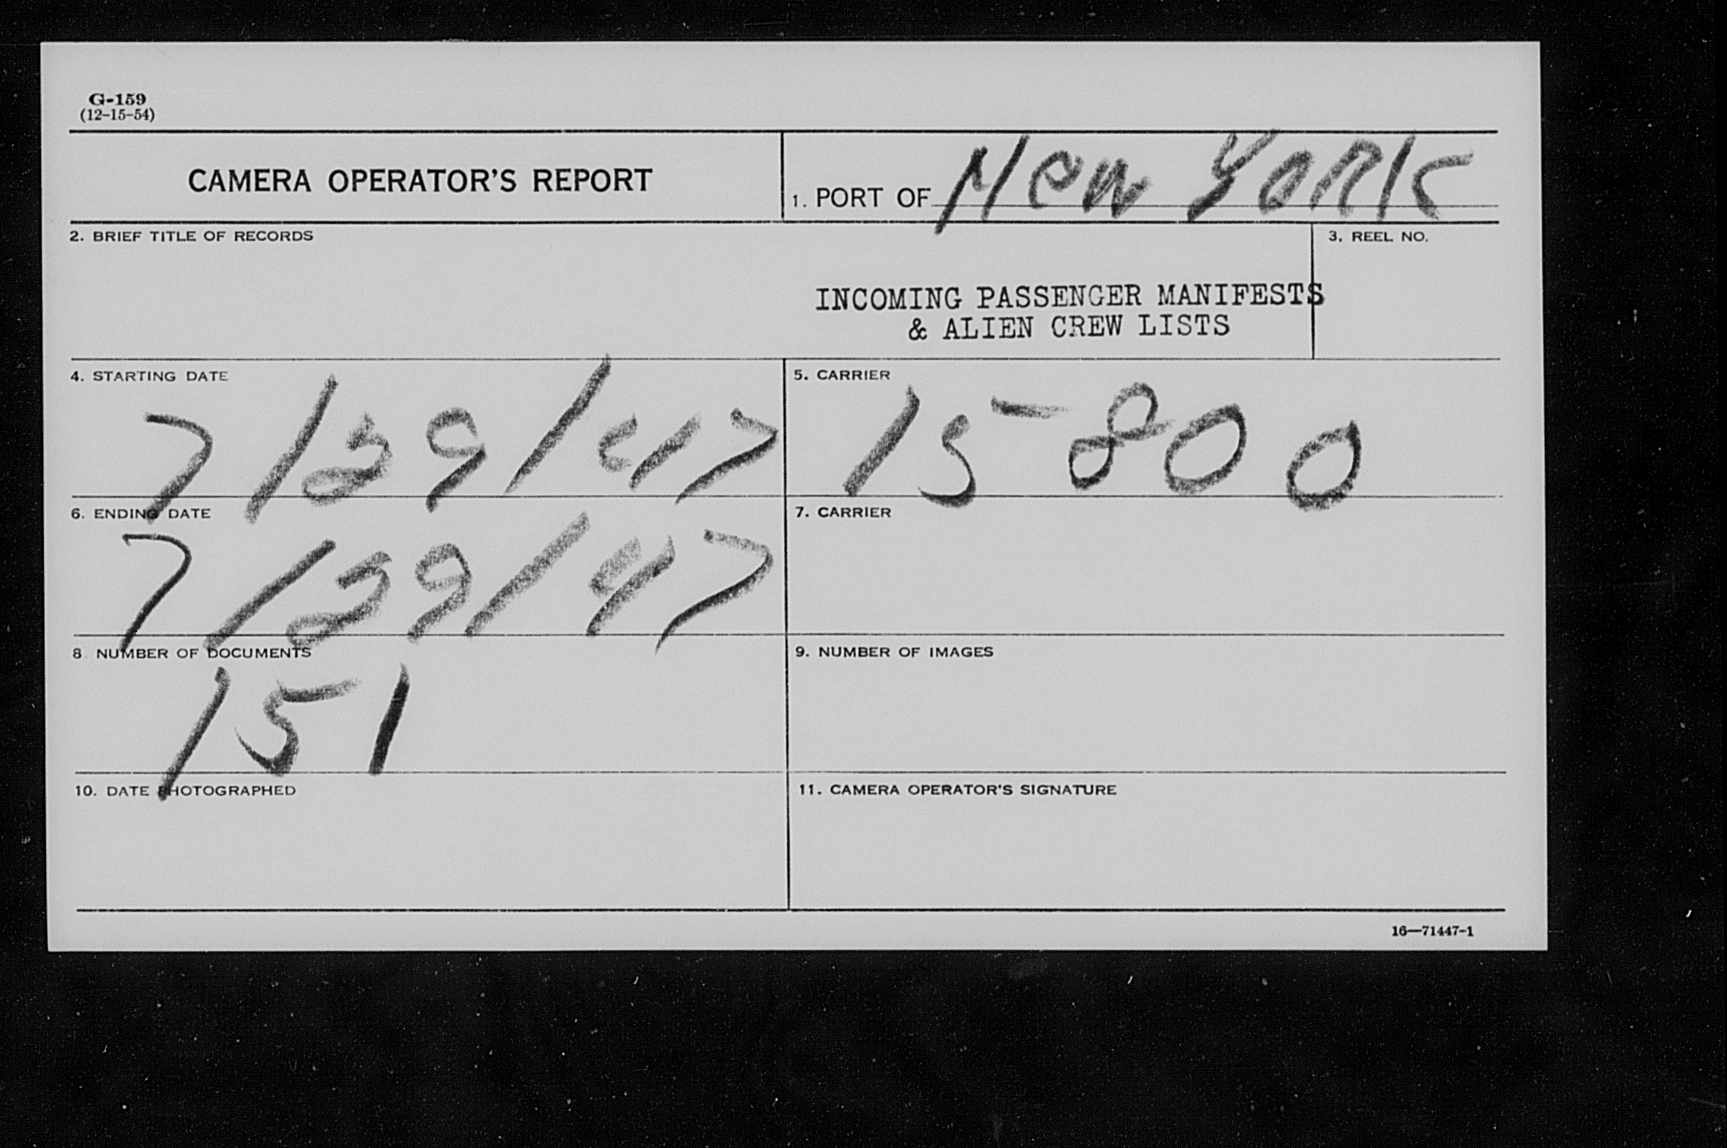 G-159
(12-15-54)
CAMERA OPERATOR'S REPORT
1. PORT OF New YORK
2. BRIEF TITLE OF RECORDS
3. REEL NO.
INCOMING PASSENGER MANIFESTS
& ALIEN CREW LISTS
4. STARTING DATE
7/29/47
5. CARRIER
15800
6. ENDING DATE
7/29/47
7. CARRIER
8. NUMBER OF DOCUMENTS
151
9. NUMBER OF IMAGES
10. DATE PHOTOGRAPHED
11. CAMERA OPERATOR'S SIGNATURE
16—71447-1